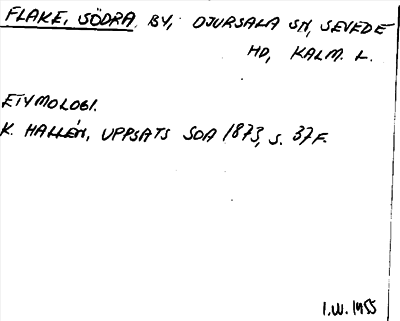 FLAKE, SÖDRA BY, DJURSALA SN, SEVEDE
HD, KALM. L.
ETYMOLOGI.
K. HALLÉN, UPPSATS SOA 1873, S. 37F.
I.W. 1955